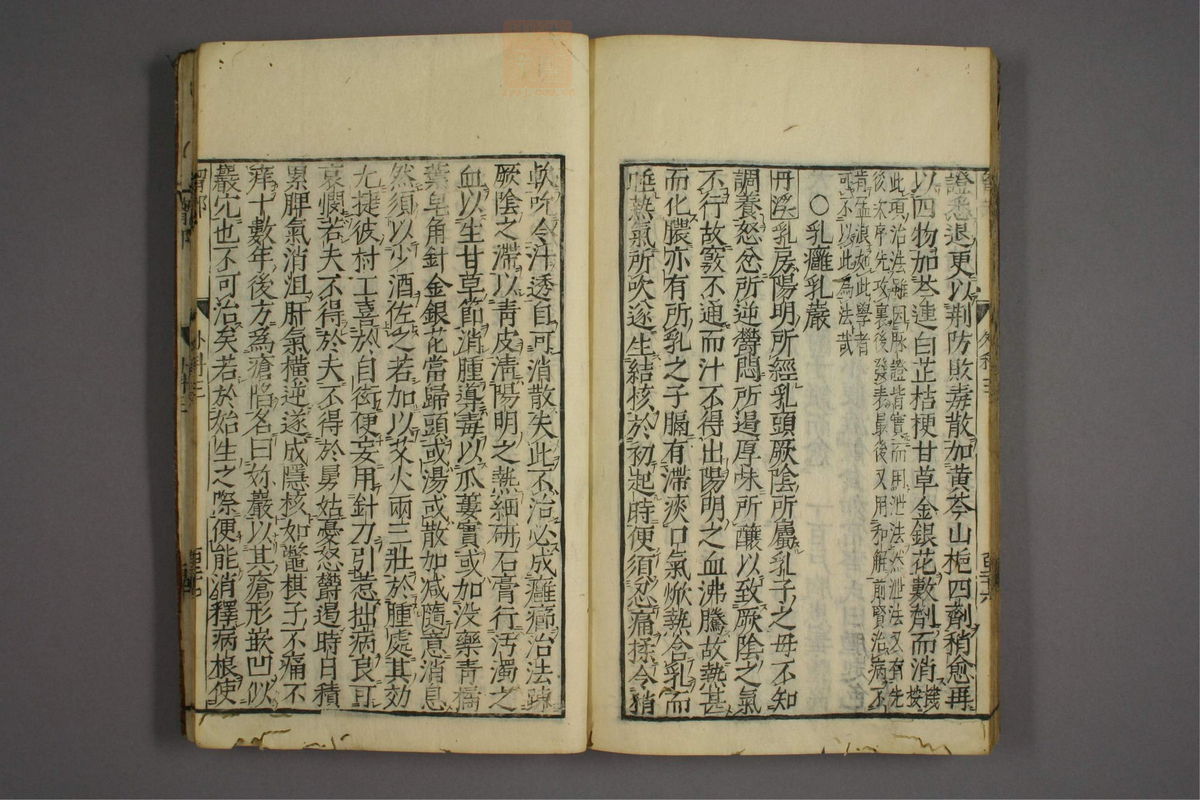 證悉退更以荆防敗毒散加黃芩山梔四劑稍愈再
以四物加芩連白芷桔梗甘草金銀花數劑而消
機按
此項治法雖因脉證皆實而用泄法然泄法又有先
後次序先攻裏後發表最後又用和解前賢治病不
肯孟浪如此學者
可不以此爲法哉
○乳癰乳巖
丹溪
乳房陽明所經乳頭厥陰所屬乳子之母不知
調養怒忿所逆鬱悶所遏厚味所釀以致厥陰之氣
不行故竅不通而汁不得出陽明之血沸騰故熱甚
而化膿亦有所乳之子膈有滯痰口氣焮熱含乳而
睡熱氣所吹遂生結核於初起時便須忍痛揉令稍
軟吮令汁透自可消散失此不治必成癰癤治法疎
厥陰之滯以青皮清陽明之熱細研石膏行汚濁之
血以生甘草節消腫導毒以瓜蔞實或加没藥青橘
葉皂角針金銀花當歸頭或湯或散加减隨意消息
然須以少酒佐之若加以艾火兩三壯於腫處其効
尤捷彼村工喜於自衒便妄用針刀引惹拙病良可
哀憫若夫不得於夫不得於舅姑憂怒鬱遏時日積
累脾氣消沮肝氣横逆遂成隱核如鼈棋子不痛不
痒十數年後方爲瘡陷名曰妳巖以其瘡形嵌凹似
巖穴也不可治矣若於始生之際便能消釋病根使
外科三
外科三